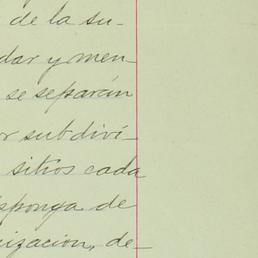 de la su-
dar y men-
se separán
or subdivi-
sitios cada
sponga de
ización, de-